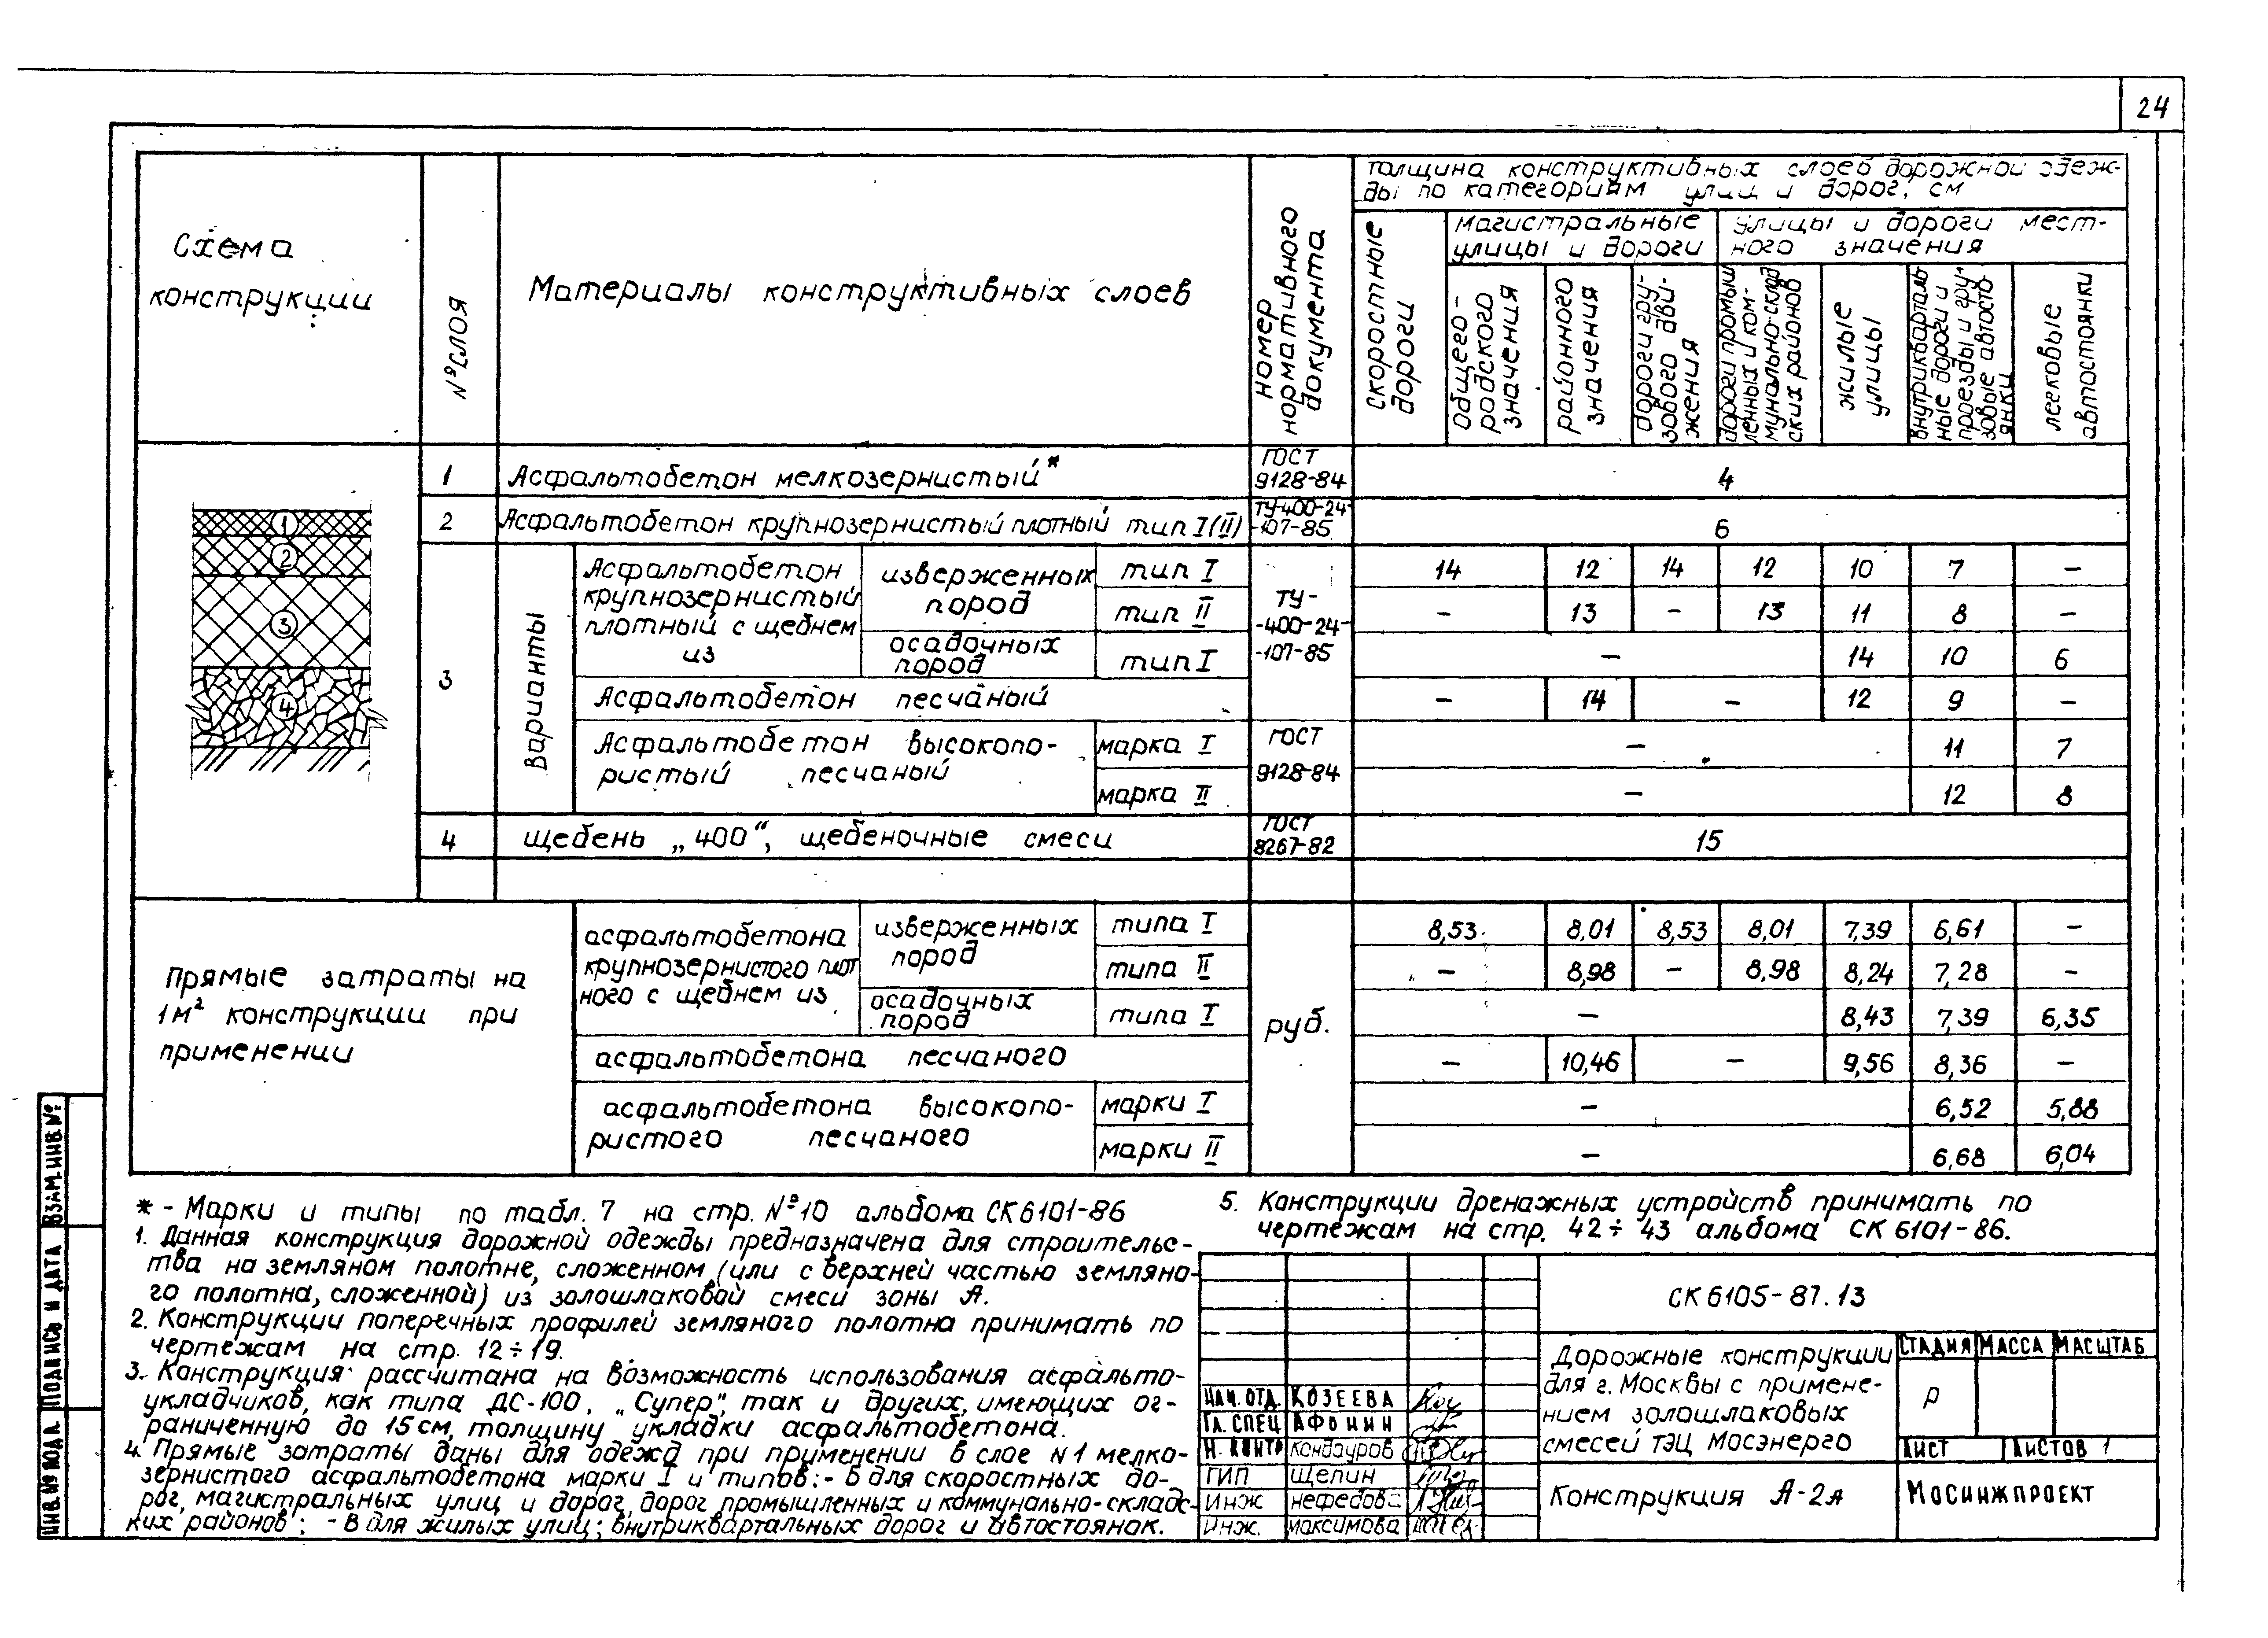 24
Схема
конструкции
№ слоя
Материалы конструктивных слоев
номер
нормативного
документа
толщина конструктивных слоев дорожной одеж-
ды по категориям улиц и дорог, см
скоростные
дороги
магистральные
улицы и дороги
улицы и дороги мест-
ного значения
общего-
родского
значения
районного
значения
дороги гру-
зового дви-
жения
дороги промыш
ленных и ком-
мунально-склад
ских районов
жилые
улицы
внутрикварталь
ные дороги и
проезды и гру-
зовые автосто-
янки
легковые
автостоянки
1 Асфальтобетон мелкозернистый* ГОСТ 9128-84 4
2 Асфальтобетон крупнозернистый плотный тип I(II) ТУ400-24-107-85 6
3 Варианты
Асфальтобетон
крупнозернистый
плотный с щебнем
из
изверженных
пород
тип I 14 12 14 12 10 7 –
тип II – 13 – 13 11 8 –
ТУ-
-400-24-
-107-85
осадочных
пород
тип I – 14 10 6
Асфальтобетон песчаный – 14 – 12 9 –
Асфальтобетон высокопо-
ристый песчаный
марка I – 11 7
ГОСТ
9128-84
марка II – 12 8
4 щебень „400“, щебеночные смеси ГОСТ 8267-82 15
1
2
3
4
Прямые затраты на
1м² конструкции при
применении
асфальтобетона
крупнозернистого плот
ного с щебнем из
изверженных
пород
типа I 8,53 8,01 8,53 8,01 7,39 6,61 –
типа II – 8,98 – 8,98 8,24 7,28 –
осадочных
пород
типа I – 8,43 7,39 6,35
руб.
асфальтобетона песчаного – 10,46 – 9,56 8,36 –
асфальтобетона высокопо-
ристого песчаного
марки I – 6,52 5,88
марки II – 6,68 6,04
* - Марки и типы по табл. 7 на стр. №10 альбома СК6101-86
1. Данная конструкция дорожной одежды предназначена для строительс-
тва на земляном полотне, сложенном (или с верхней частью земляно-
го полотна, сложенной) из золошлаковой смеси зоны А.
2. Конструкции поперечных профилей земляного полотна принимать по
чертежам на стр. 12÷19.
3. Конструкция рассчитана на возможность использования асфальто-
укладчиков, как типа ДС-100, „Супер“, так и других, имеющих ог-
раниченную до 15см, толщину укладки асфальтобетона.
4. Прямые затраты даны для одежд при применении в слое N1 мелко-
зернистого асфальтобетона марки I и типов:- Б для скоростных до-
рог, магистральных улиц и дорог, дорог промышленных и коммунально-складс-
ких районов; - В для жилых улиц; внутриквартальных дорог и автостоянок.
5. Конструкции дренажных устройств принимать по
чертежам на стр. 42÷43 альбома СК 6101-86.
СК 6105-87.13
Дорожные конструкции
для г. Москвы с примене-
нием золошлаковых
смесей ТЭЦ Мосэнерго
Стадия Масса Масштаб
Р
Лист Листов 1
Конструкция А-2я
Мосинжпроект
Нач. отд. Козеева
Гл. спец Афонин
Н. контр Кондауров
ГИП Щепин
Инж Нефедова
Инж. Максимова
Взам. инв. №
Подпись и дата
Инв. № подл.